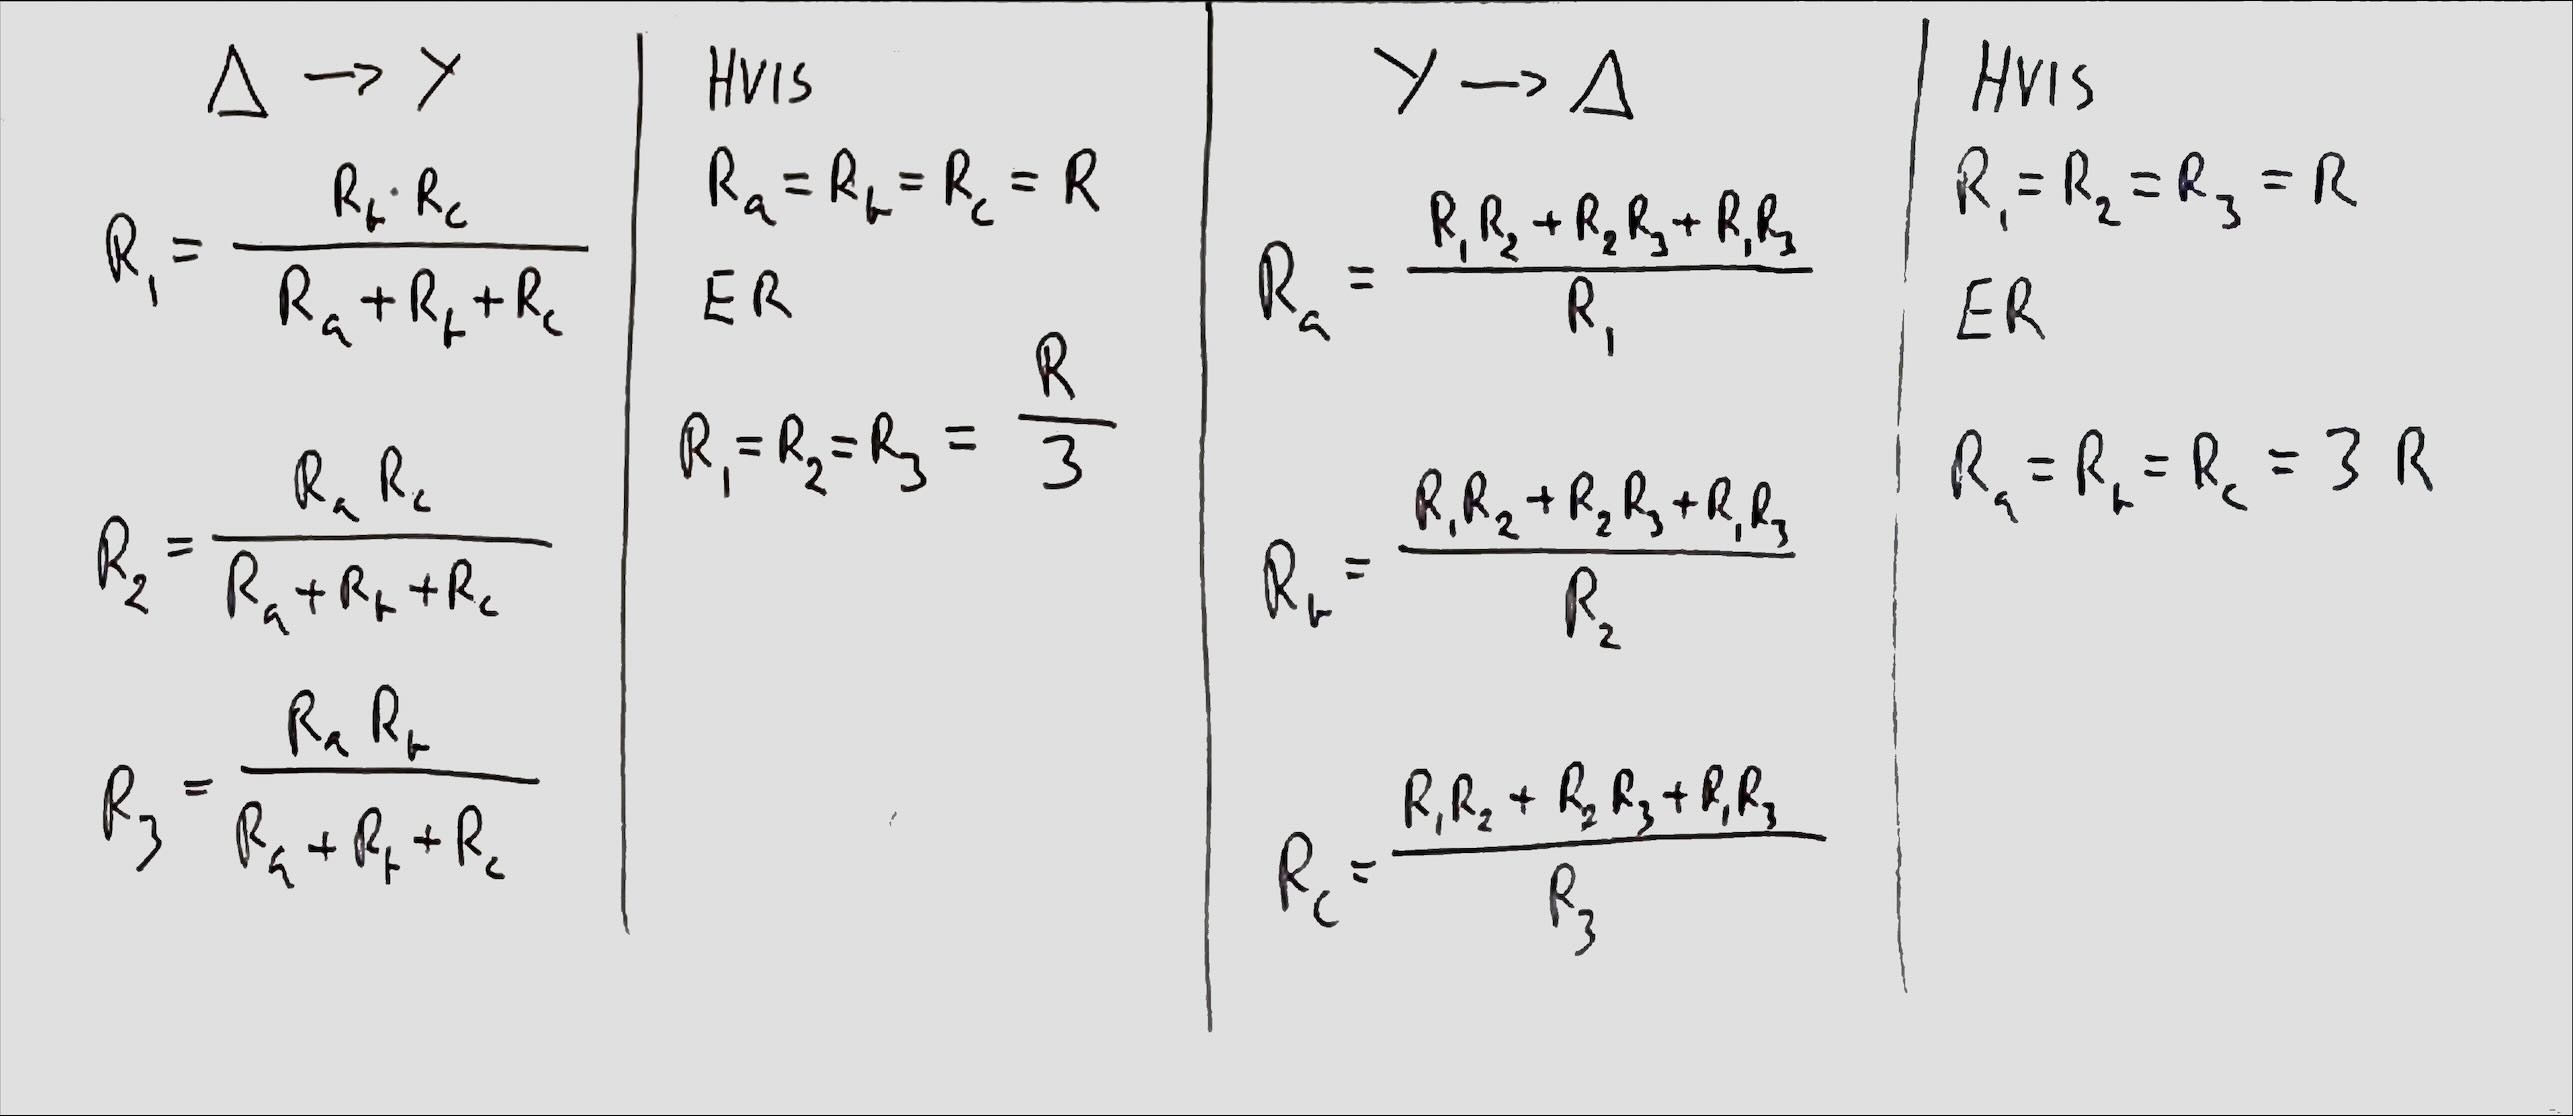 Δ → Y
R₁ = (R_b · R_c) / (R_a + R_b + R_c)
R₂ = (R_a R_c) / (R_a + R_b + R_c)
R₃ = (R_a R_b) / (R_a + R_b + R_c)
HVIS
R_a = R_b = R_c = R
ER
R₁ = R₂ = R₃ = R / 3
Y → Δ
R_a = (R₁R₂ + R₂R₃ + R₁R₃) / R₁
R_b = (R₁R₂ + R₂R₃ + R₁R₃) / R₂
R_c = (R₁R₂ + R₂R₃ + R₁R₃) / R₃
HVIS
R₁ = R₂ = R₃ = R
ER
R_a = R_b = R_c = 3 R